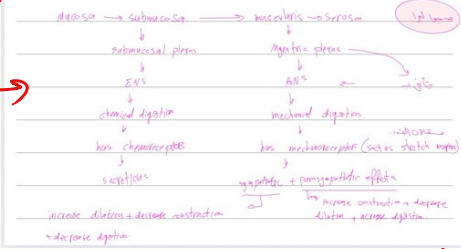 Mucosa → submucosa → muscularis → serosa
submucosal plexus Myentric plexus
ENS ANS
chemical digestion mechanical digestion
has chemoreceptors has mechanoreceptors (such as stretch receptors)
secretions sympathetic + parasympathetic effects
increase constriction + decrease
increase dilation + decrease constriction dilation + increase digestion
+ decrease digestion